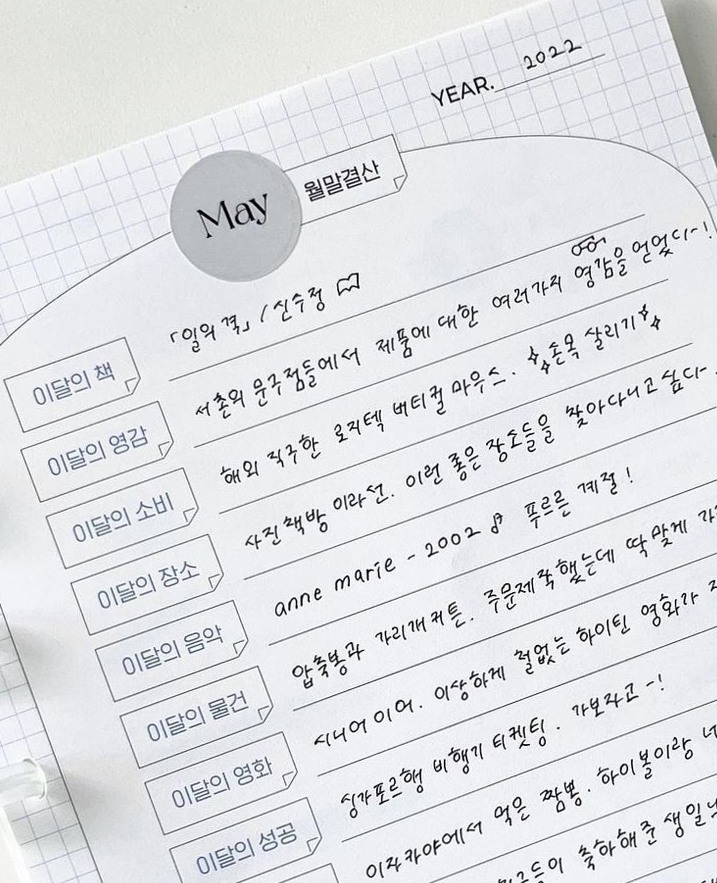 YEAR. 2022
May 월말결산
이달의 책 「일의 격」 / 신수정
이달의 영감 서촌의 문구점들에서 제품에 대한 여러가지 영감을 얻었다-!
이달의 소비 해외 직구한 로지텍 버티컬 마우스. 손목 살리기
이달의 장소 사진책방 이라선. 이런 좋은 장소들을 찾아다니고 싶다-.
이달의 음악 anne marie - 2002 푸르른 계절!
이달의 물건 압축봉과 가리개커튼. 주문제작했는데 딱 맞게
이달의 영화 시니어 이어. 이상하게 철없는 하이틴 영화가
이달의 성공 싱가포르행 비행기 티켓팅. 가보자고-!
이자카야에서 먹은 짬뽕. 하이볼이랑
축하해준 생일